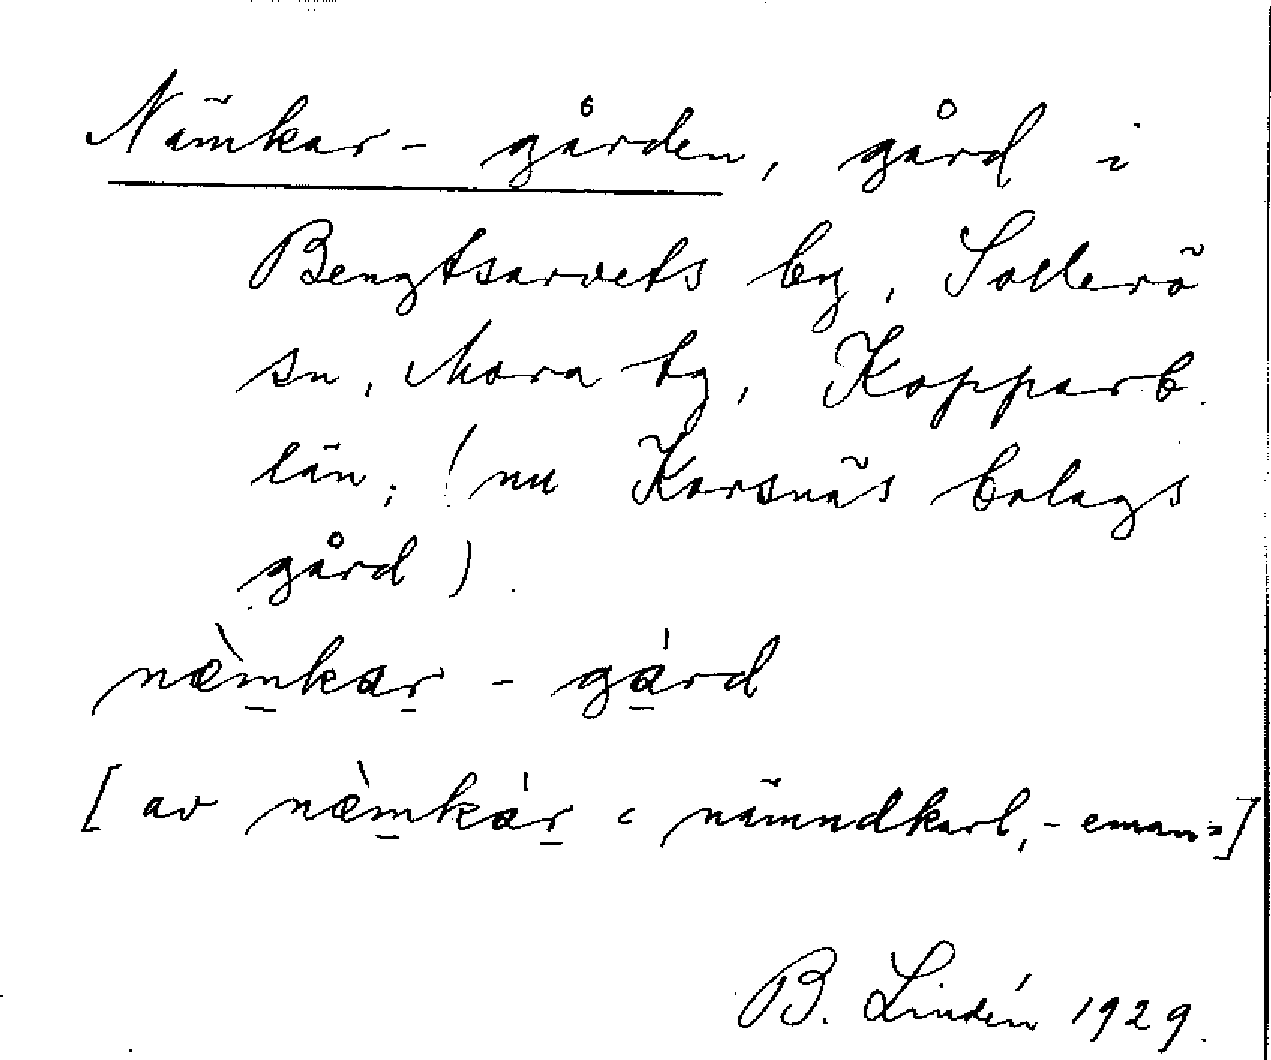 Nämkar-gården, gård i
Bengtsarvets by, Sollerö
sn, Mora tg, Kopparb.
län, (nu Korsnäs bolags
gård).
næ̀mkar - gård
[av næ̀mkár < nämndkarl, -eman>]
B. Lindén 1929.